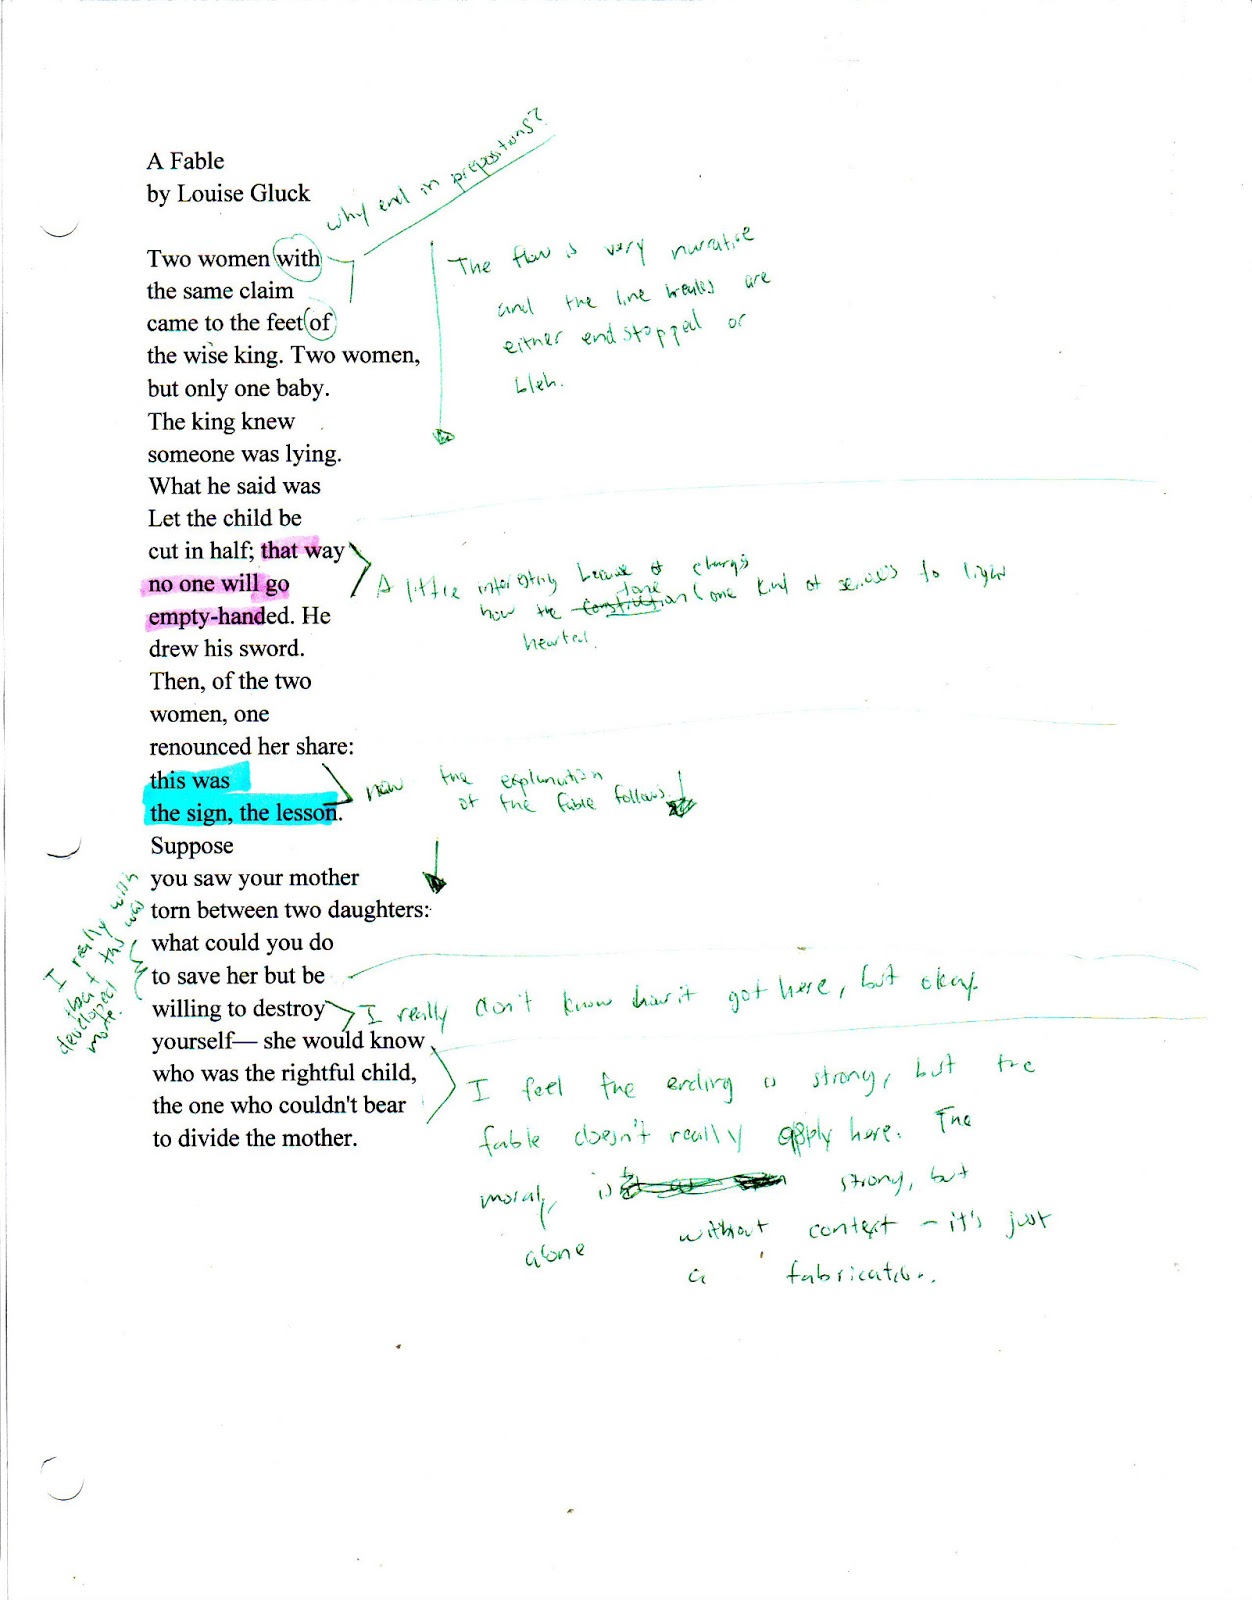 A Fable
by Louise Gluck
why end in prepositions?
Two women with
the same claim
came to the feet of
the wise king. Two women,
but only one baby.
The king knew
someone was lying.
What he said was
Let the child be
cut in half; that way
no one will go
empty-handed. He
drew his sword.
Then, of the two
women, one
renounced her share:
this was
the sign, the lesson.
Suppose
you saw your mother
torn between two daughters:
what could you do
to save her but be
willing to destroy
yourself— she would know
who was the rightful child,
the one who couldn't bear
to divide the mother.
The flow is very narrative
and the line breaks are
either end stopped or
bleh.
A little interesting because of
how the tone (one kind of serious to light
hearted.
now the explanation
of the fable follows.
I really wish
that this was
developed
more.
I really don't know how it got here, but okay.
I feel the ending is strong, but the
fable doesn't really apply here. The
moral, is strong, but
alone without context – it's just
a fabrication.